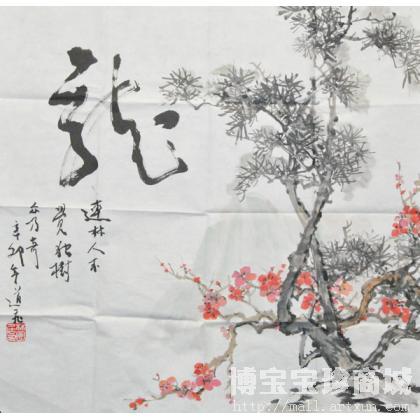 龍
連林人不
覺独樹
众乃奇
辛卯年道
博宝宝珍商城
http://mall.artxun.com